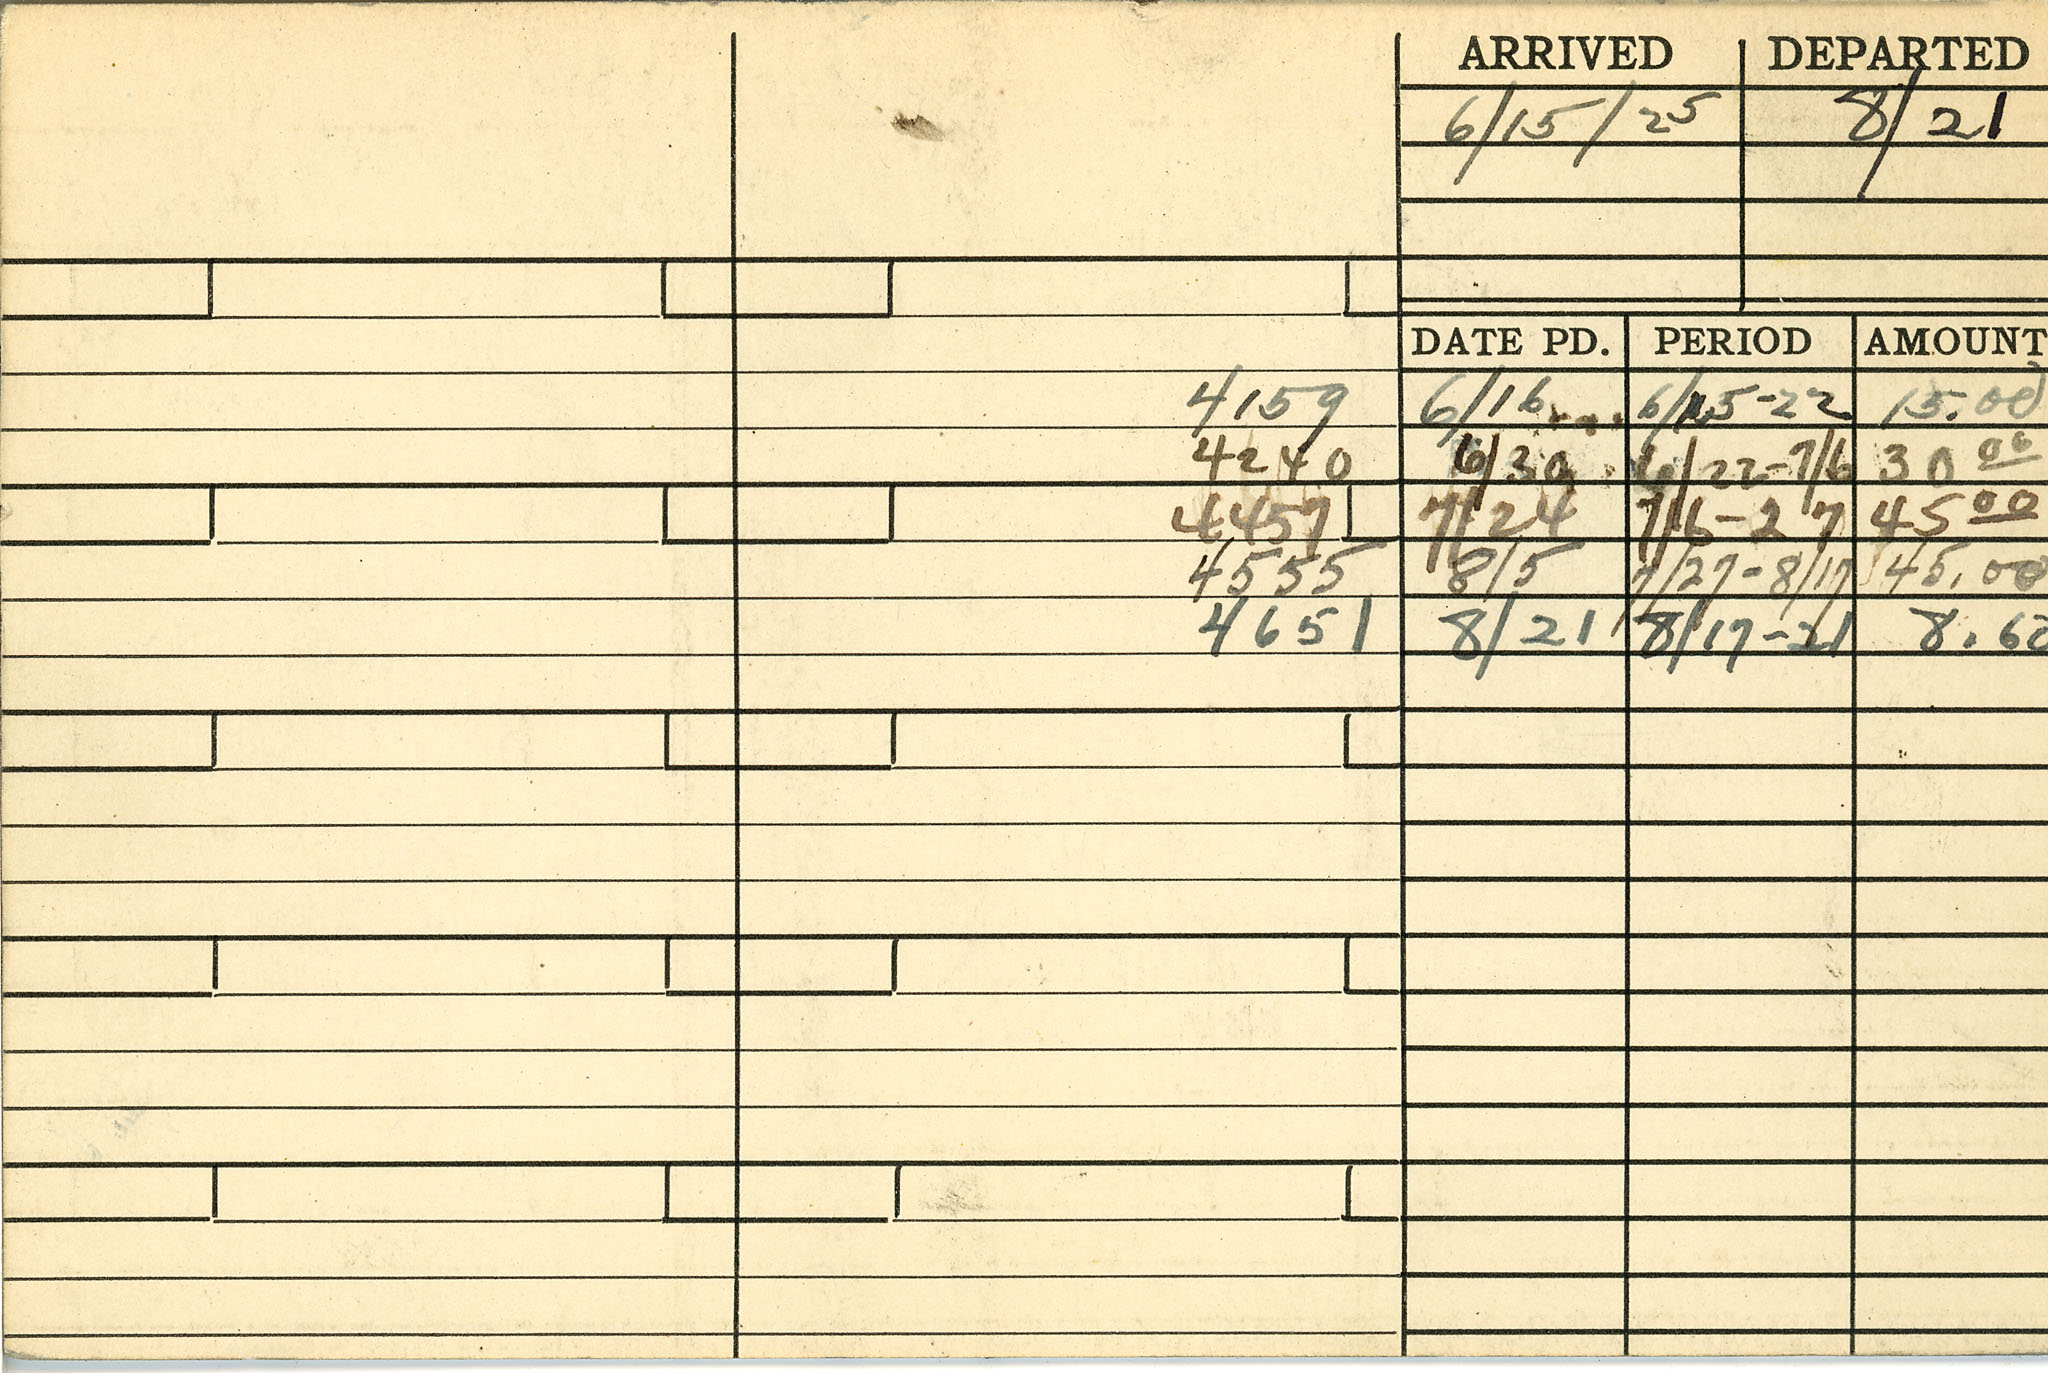 ARRIVED DEPARTED
6/15/25 8/21
DATE PD. PERIOD AMOUNT
4159 6/16 6/15-22 15.00
4240 6/30 6/22-7/6 30 00
4457 7/24 7/6-27 45 00
4555 8/5 7/27-8/17 45.00
4651 8/21 8/17-21 8.60